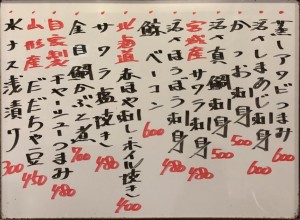 蒸しアワビつまみ 600
活〆しまあじ刺身 600
かつお刺身 500
活〆真鯛刺身 500
活〆ほうぼう刺身 480
鯨ベーコン 600
宮城産 サワラ刺身 480
北海道 春ほや刺し、ホイル焼き 400
サワラ塩焼き 480
金目鯛かぶと煮 700
自家製 チャーシューつまみ 480
山形産 だだちゃ豆 450
水ナス浅漬り 300